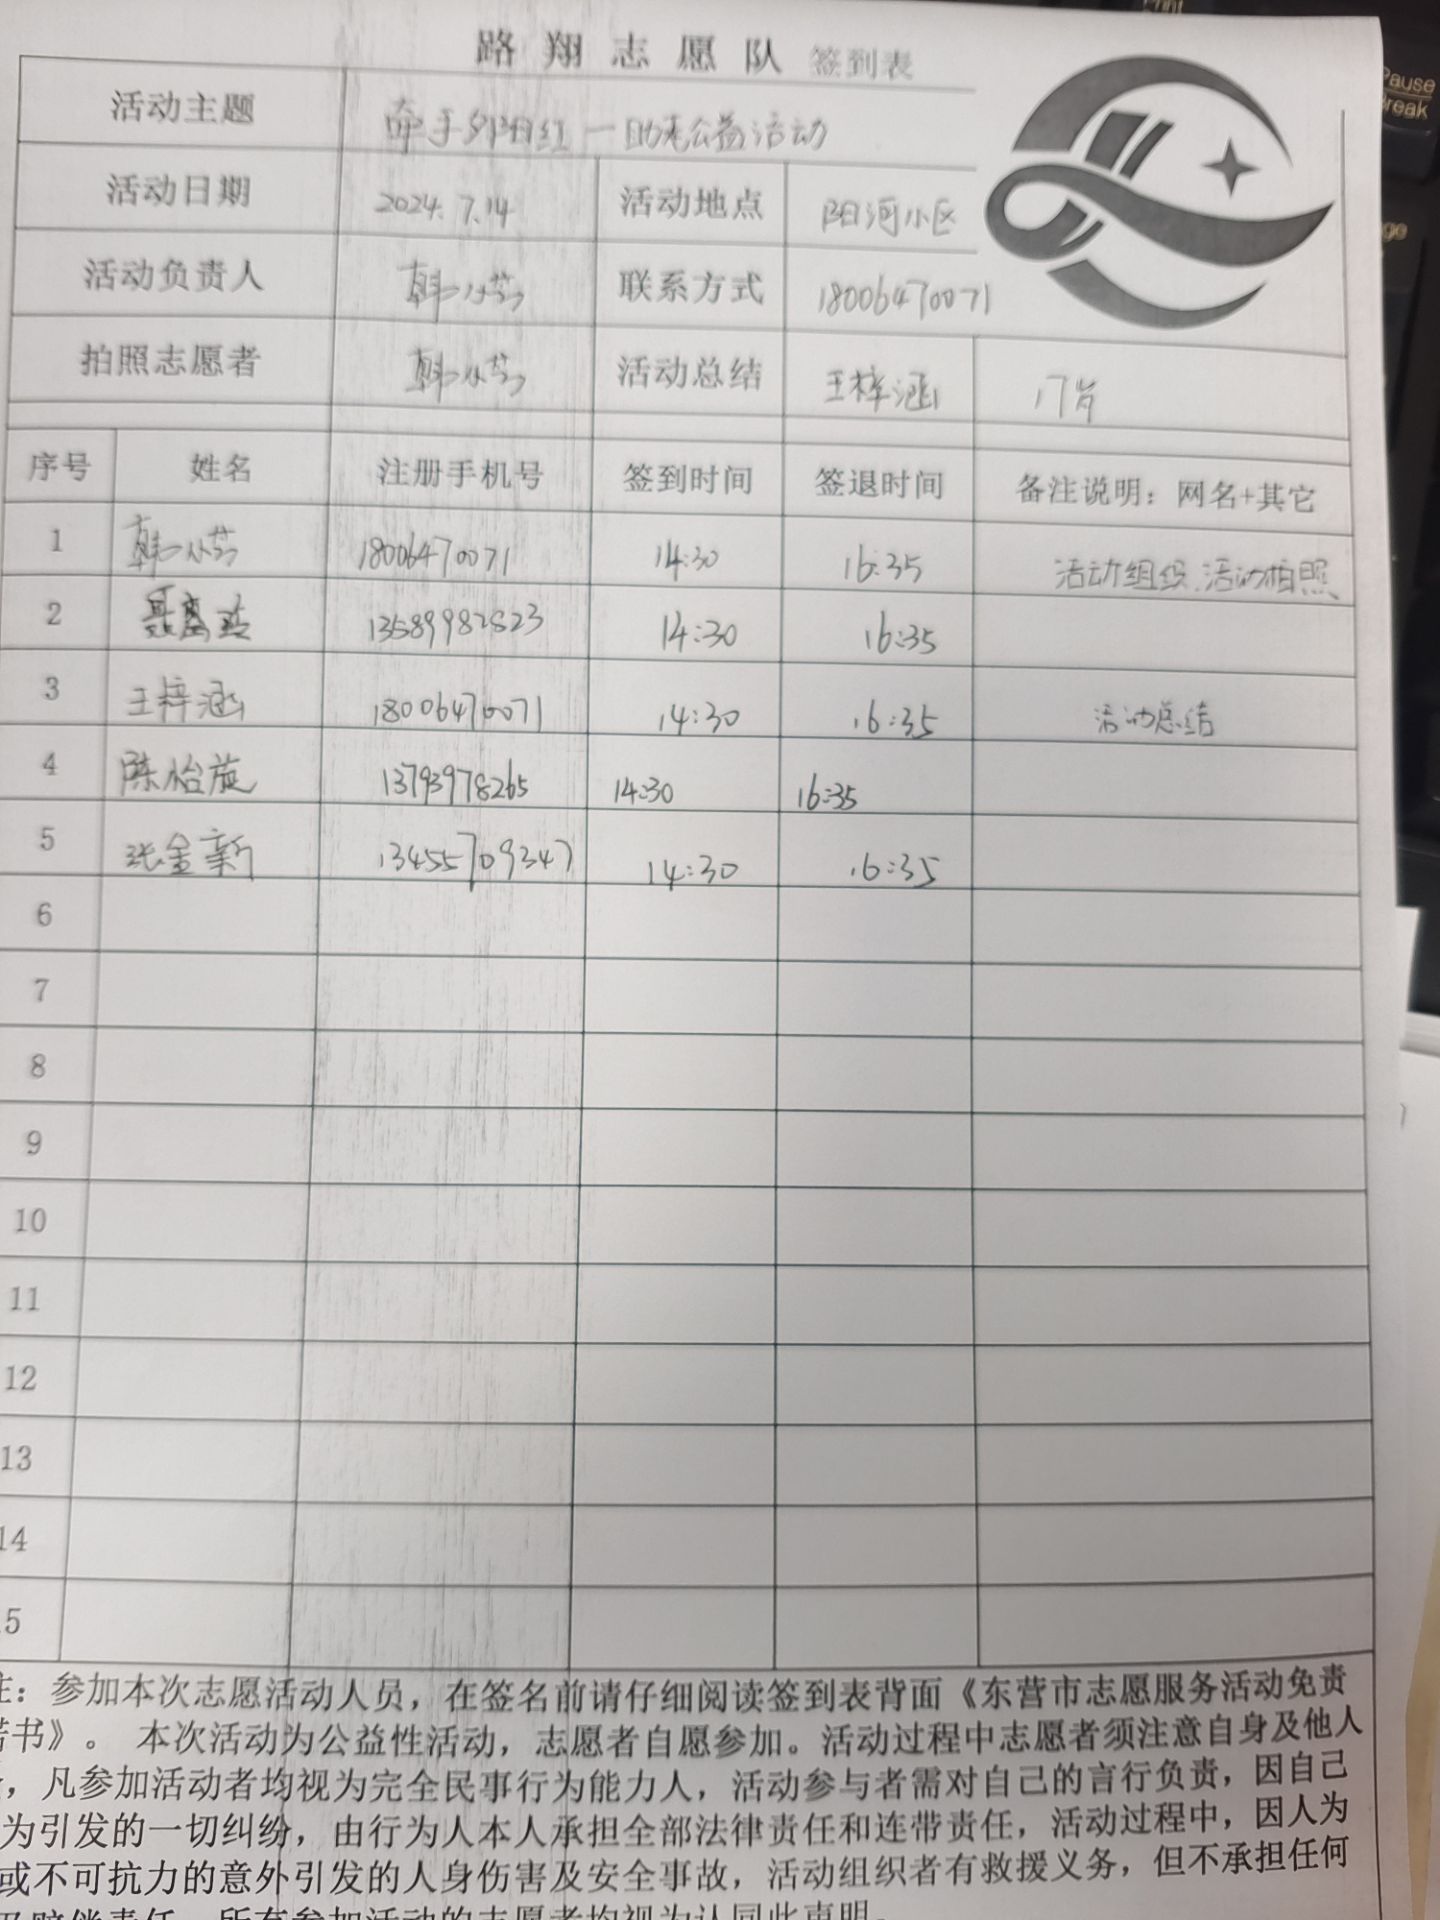 Print
Pause
Break
路翔志愿队 签到表
活动主题 牵手夕阳红一助老公益活动
活动日期 2024.7.14 活动地点 阳河小区
活动负责人 韩小芬 联系方式 18006470071
拍照志愿者 韩小芬 活动总结 王梓涵 17岁
序号 姓名 注册手机号 签到时间 签退时间 备注说明：网名+其它
1 韩小芬 18006470071 14:30 16:35 活动组织.活动拍照
2 13589982823 14:30 16:35
3 王梓涵 18006470071 14:30 16:35 活动总结
4 陈怡旋 13793978265 14:30 16:35
5 张金新 13455709347 14:30 16:35
6
7
8
9
10
11
12
13
14
15
注：参加本次志愿活动人员，在签名前请仔细阅读签到表背面《东营市志愿服务活动免责
诺书》。 本次活动为公益性活动，志愿者自愿参加。活动过程中志愿者须注意自身及他人
，凡参加活动者均视为完全民事行为能力人，活动参与者需对自己的言行负责，因自己
为引发的一切纠纷，由行为人本人承担全部法律责任和连带责任，活动过程中，因人为
或不可抗力的意外引发的人身伤害及安全事故，活动组织者有救援义务，但不承担任何
及赔偿责任。所有参加活动的志愿者均视为认同此声明。